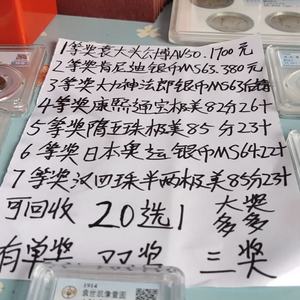 1等奖袁大头公博AU50.1700元
2等奖肯尼迪银币MS63.380元
3等奖大力神法郎银币MS63
4等奖康熙通宝极美82分26个
5等奖隋五珠极美85分23个
6等奖日本奥运银币MS64.22个
7等奖汉四珠半两极美85分23个
可回收 20选1 大奖多多
有单奖 双奖 三奖
1914
袁世凯像壹圆